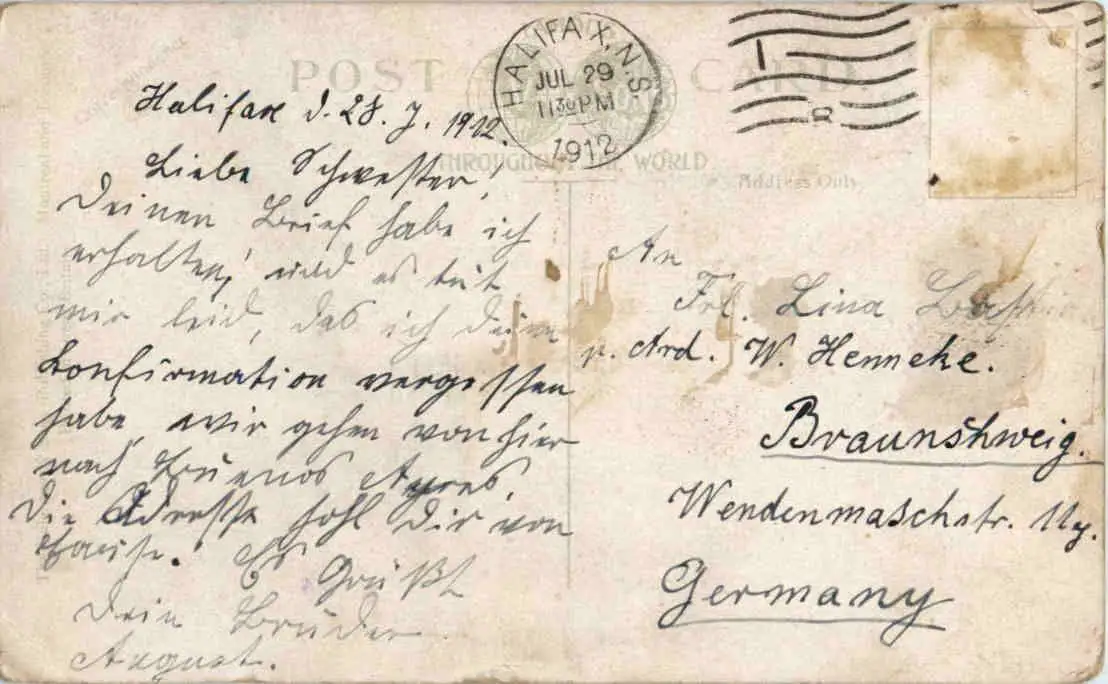 POST CARD
HALIFAX, N.S.
JUL 29
11 30 PM
1912
THROUGHOUT THE WORLD
Address Only
Halifax d. 28. 7. 1912.
Liebe Schwester,
Deinen Brief habe ich
erhalten, und es tut
mir leid, das ich deine
Konfirmation vergessen
habe, wir gehen von hier
nach Buenos Ayres,
Die Adresse hohl Dir von
Hause. Es Grüßt
Dein Bruder
August.
An
Frl. Lina
p. Ard. W. Henneke.
Braunshweig.
Wendenmaschstr.
Germany